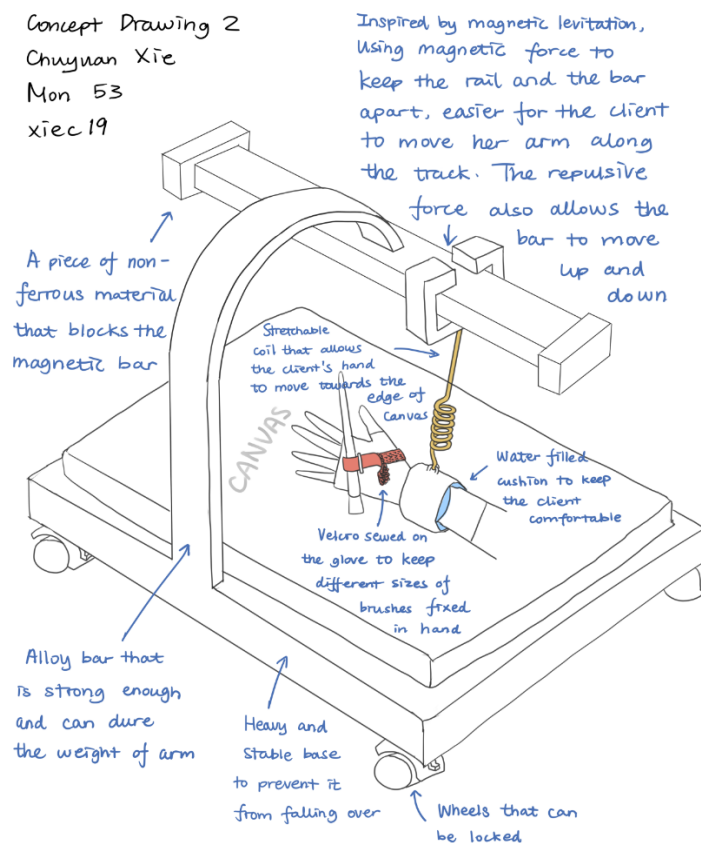 Concept Drawing 2
Chuyuan Xie
Mon 53
xiec19
Inspired by magnetic levitation,
Using magnetic force to
keep the rail and the bar
apart, easier for the client
to move her arm along
the track. The repulsive
force also allows the
bar to move
up and
down
A piece of non-
ferrous material
that blocks the
magnetic bar
Stretchable
coil that allows
the client's hand
to move towards the
edge of
canvas
CANVAS
Water filled
cushion to keep
the client
comfortable
Velcro sewed on
the glove to keep
different sizes of
brushes fixed
in hand
Alloy bar that
is strong enough
and can dure
the weight of arm
Heavy and
stable base
to prevent it
from falling over
Wheels that can
be locked